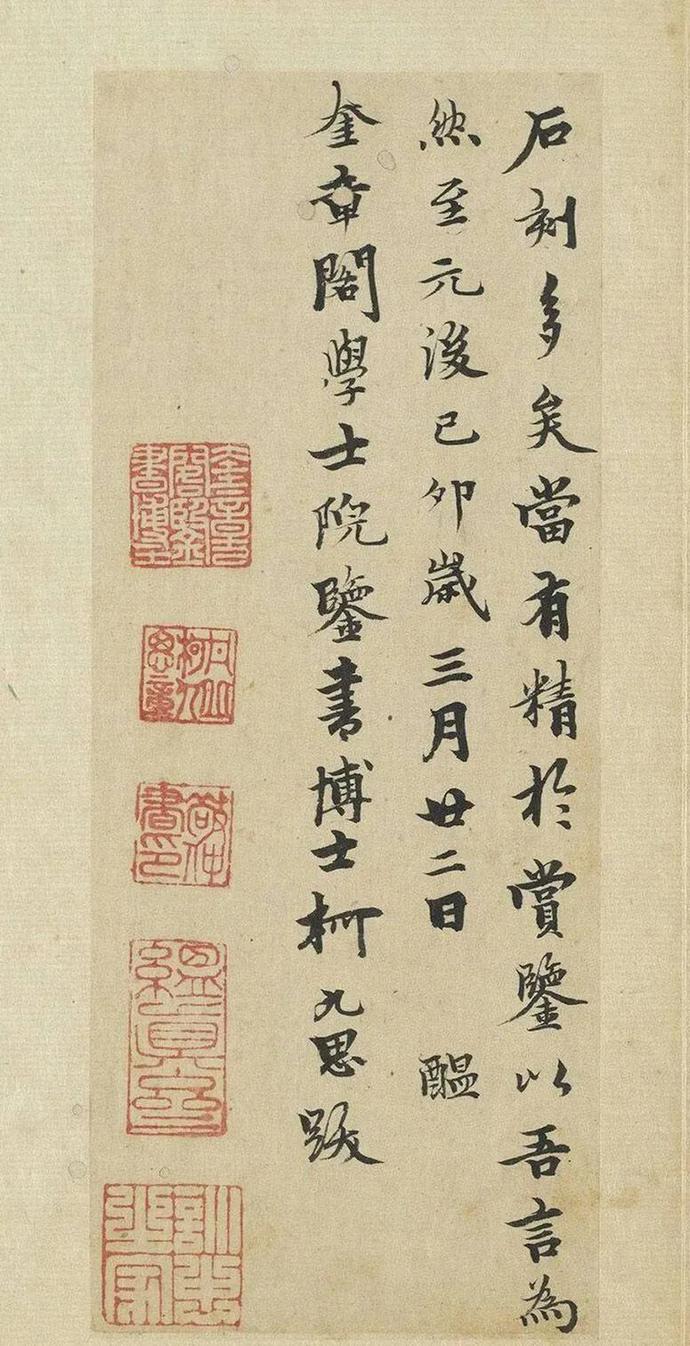 石刻多矣當有精於賞鑒以吾言為
然至元後己卯歲三月廿二日 醞
奎章閣學士院鑒書博士柯九思跋
奎章閣鑒書博士
敬仲書印
縕真齋
訓忠之家